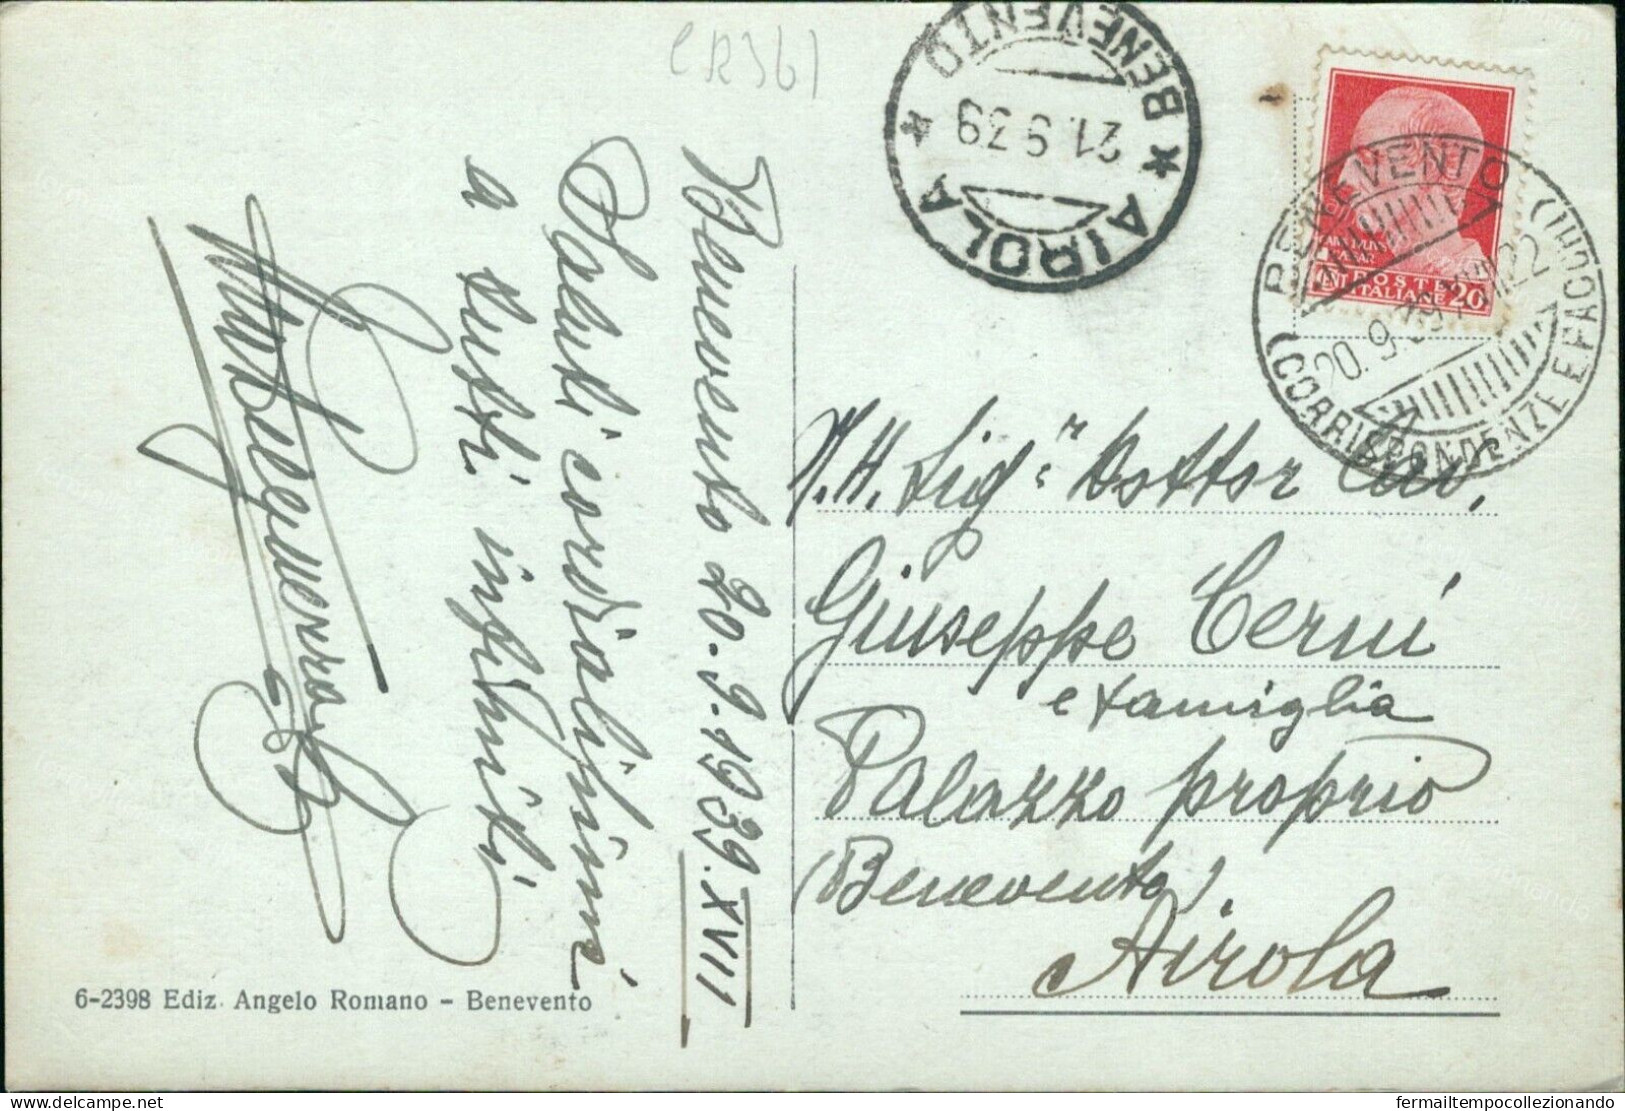 CR361
BENEVENTO
21.9.39
* AIROLA *
POSTE
ITALIANE 20
BENEVENTO
20.9.39 XVII 22
(CORRISPONDENZE E PACCHI)
Benevento 20.9.1939.XVII
Saluti cordialissimi
a tutti infiniti
N.H. Sig.r Dottor Cav.
Giuseppe Cerni
e famiglia
Palazzo proprio
(Benevento)
Airola
6-2398 Ediz. Angelo Romano - Benevento
fermailtempocollezionando
delcampe.net